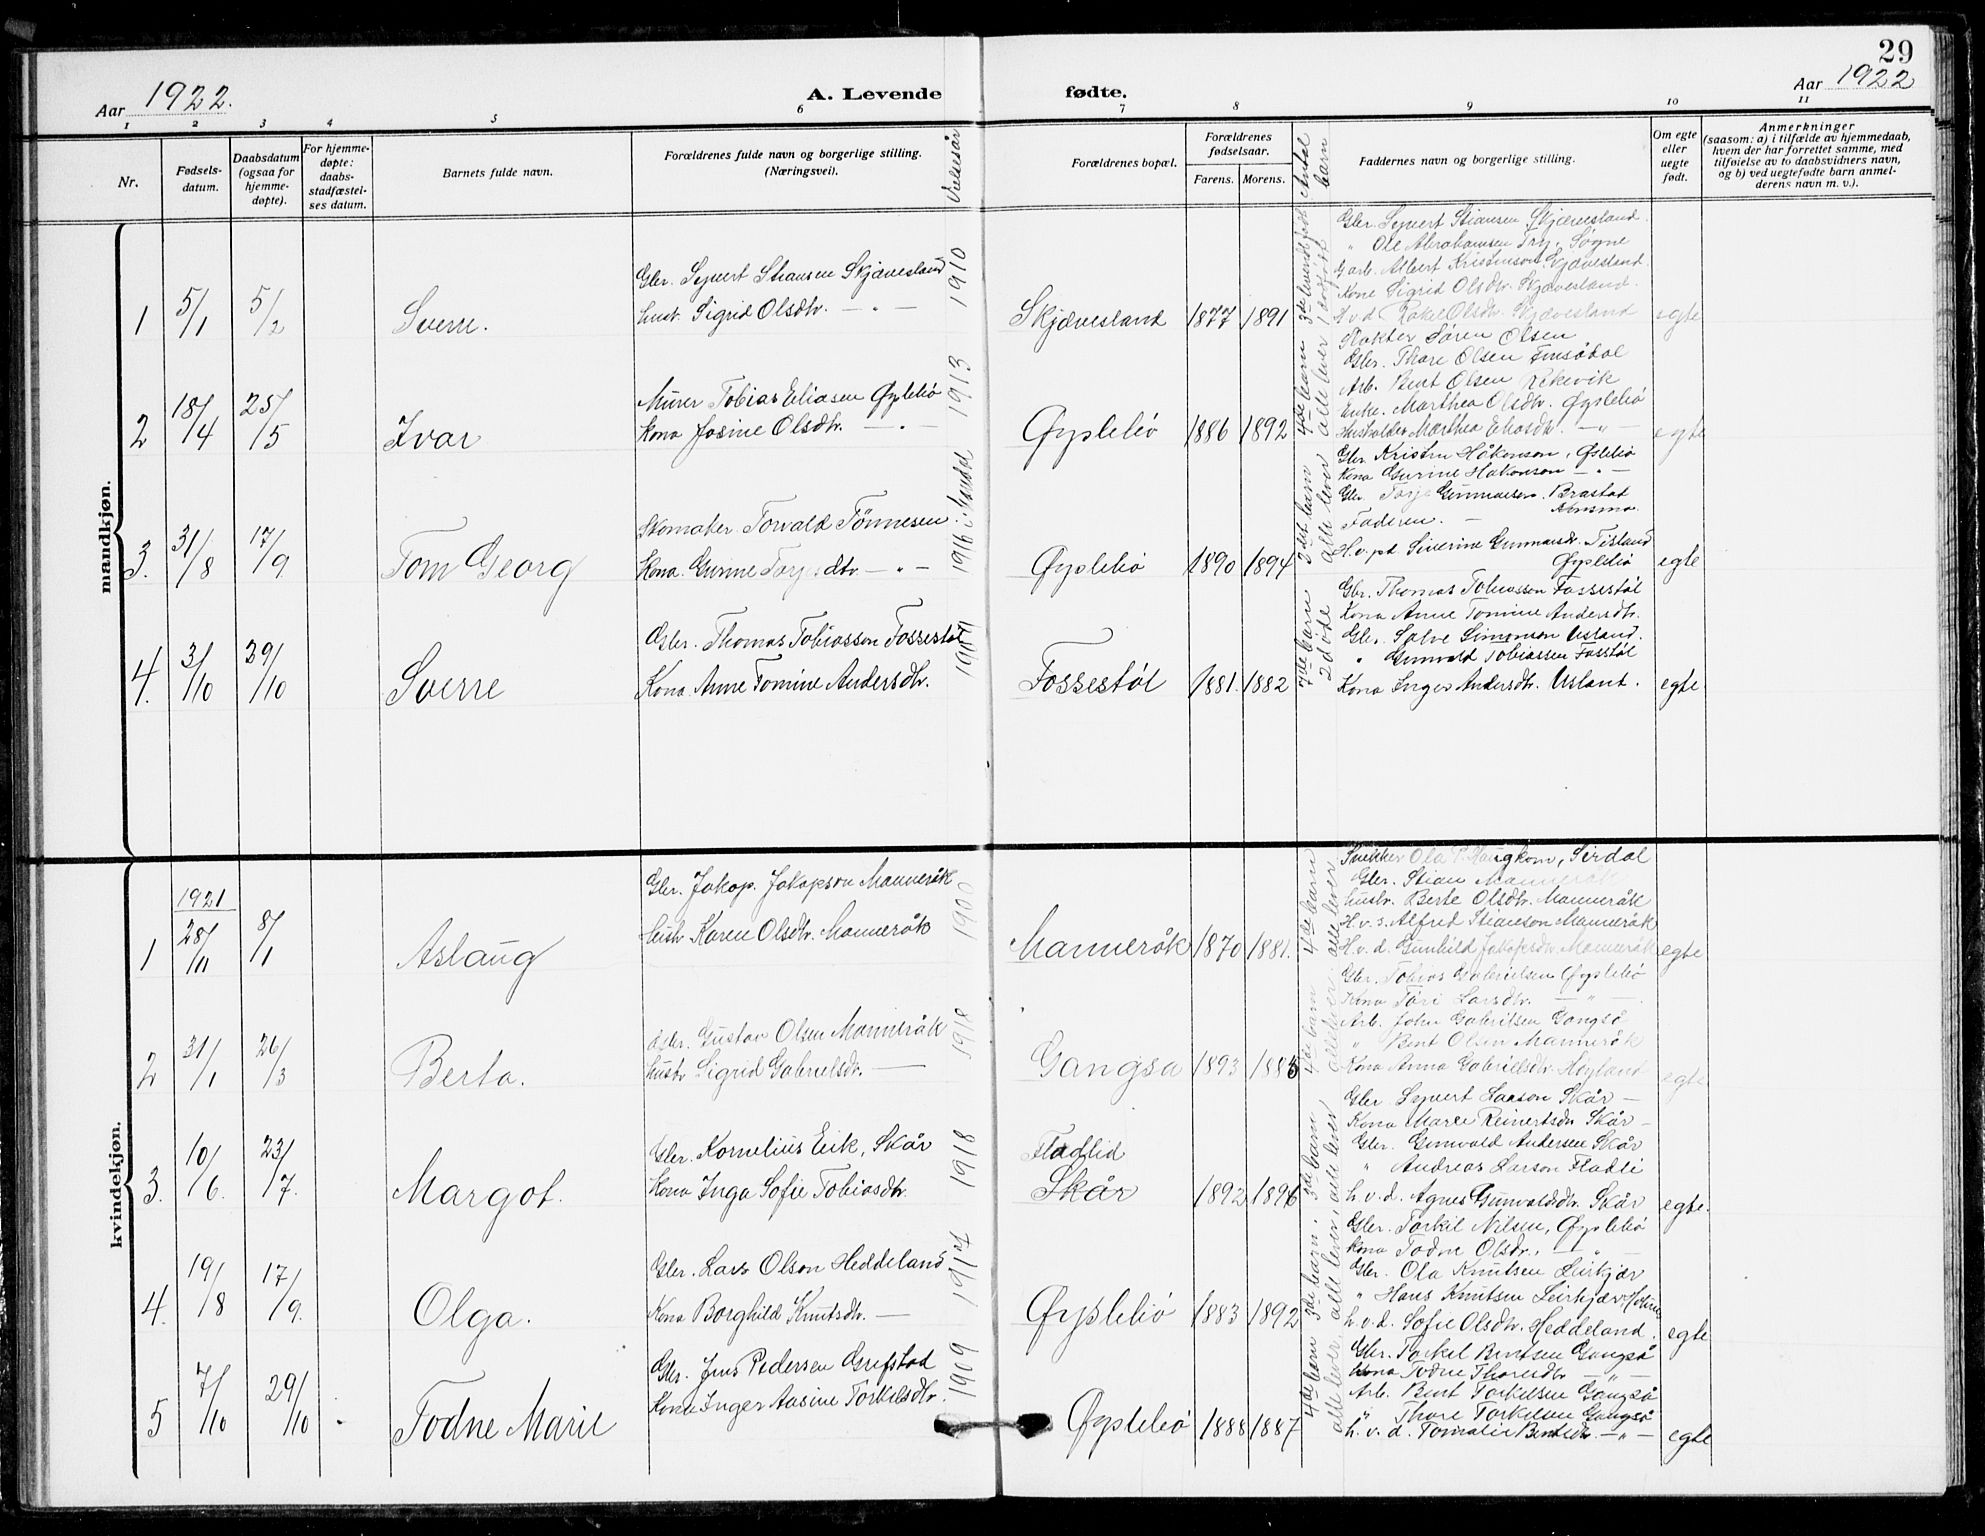 29
Aar 1922.
A. Levende fødte.
Aar 1922
1 2 3 4 5 6 7 8 9 10 11
Nr.
Fødsels-
datum.
Daabsdatum
(ogsaa for
hjemme-
døpte).
For hjemme-
døpte:
daabs-
stadfæstel-
ses datum.
Barnets fulde navn.
Forældrenes fulde navn og borgerlige stilling.
(Næringsvei).
Vielsesår
Forældrenes bopæl.
Forældrenes
fødselsaar.
Farens. Morens.
Antal
barn
Faddernes navn og borgerlige stilling.
Om egte
eller
uegte
født.
Anmerkninger
(saasom: a) i tilfælde av hjemmedaab,
hvem der har forrettet samme, med
tilføielse av to daabsvidners navn,
og b) ved uegtefødte barn anmel-
derens navn m. v.).
mandkjøn.
1 5/1 5/2 Sverre.
Gbr. Syvert Stiansen Skjævesland
hust. Sigrid Olsdtr. — " —
1910
Skjævesland 1877 1891
1 dødfødt
Gbr. Syvert Stiansen Skjævesland.
" Ole Abrahamsen Try, Søgne
Garb. Albert Kristensen Skjævesland.
Kone Sigrid Olsdtr. Skjævesland.
H. v. d. Rakel Olsdtr. Skjævesland
egte
2 18/4 25/5 Ivar
Murer Tobias Eliasen Øyslebø
Kona Josine Olsdtr. — " —
1913
Øyslebø 1886 1892
4de barn
alle lever
Søren Olsen
Gbr. Thore Olsen Finsådal
Arb. Bent Olsen Rekevik
Enke. Marthea Olsdtr. Øyslebø
Marthea Eliasdtr. — " —
egte
3. 31/8 17/9 Tom Georg
Skomaker Torvald Tønnesen.
Kona. Gurine Torjesdtr. — " —
1916 i Mandal
Øyslebø 1890 1894
2det barn
alle lever
Gbr. Kristen Håkonson, Øslebø
Kona Gurine Håkonson — " —
Gbr. Torje Gunnarsen. Brastad
Konsmo.
Faderen. —
H. v. pd Siverine Gunnarsdr. Tisland
Øyslebø
egte
4. 3/10 29/10 Sverre
Gbr. Thomas Tobiasson Fossestøl
Kona. Anne Tomine Andersdtr.
Fossestøl 1881. 1882
7de barn
2 døde
Gbr. Thomas Tobiasson Fossestøl
Kona Anne Tomine Andersdtr.
Gbr. Salve Simonson Usland.
" Gunvald Tobiassen Fosstøl
Kona Inger Andersdtr. Usland.
egte
kvindekjøn.
1921
1 28/11 8/1 Aslaug
Gbr. Jakop. Jakopson Manneråk
Hustr Karen Olsdtr. Manneråk
1900
Manneråk 1870 1881.
4de barn
alle lever
Snekker Ola P. Haugkom, Sirdal
Gbr. Stian Manneråk
hustr. Berte Olsdtr. Manneråk
H. v. s. Alfred Stianson Manneråk
H. v. d. Gunhild Jakopsdtr. Manneråk
egte
2 31/1 26/3 Berta.
Gbr. Gustav Olsen Manneråk
hustr Sigrid Gabrielsdtr. —
1918
Gangså 1893 1885
4de barn
alle lever
Gbr. Tobias Gabrielsen Øyslebø
Kona Tøri Larsdtr. — " —
Arb. John Gabrielsen Gangså
" Bent Olsen Manneråk
Kona Anna Gabrielsdtr. Høyland
egte
3. 10/6. 23/7. Margot.
Gbr. Kornelius Eik, Skår
Kona Inga Sofie Tobiasdtr.
1918
Fladlid
Skår 1892 1896
3de barn.
alle lever
Gbr Syvert Hanson Skår —
Kona Maren Reinertsdtr Skår —
Gbr. Gunvald Andersen Skår
" Andreas Larson Fladli
h. v. d. Agnes Gunvaldsdtr. Skår
egte.
4. 19/8 17/9. Olga.
Gbr. Lars Olson Heddeland
Kona Borghild Knutsdtr. —
1917
Øyslebø 1883 1892
3de barn.
alle lever
Gbr. Torkil Nilsen, Øyslebø
Kona Todne Olsdtr. — " —
Gbr. Ola Knutsen Leirkjær
" Hans Knutsen Leirkjær, Holum
h. v. d. Sofie Olsdtr. Heddeland.
egte
5 7/10 29/10 Todne Marie
Gbr. Jens Pedersen Grefstad
Kona Inger Aasine Torkelsdtr.
1909
Øyslebø 1888 1887
4de barn
alle lever
Gbr. Torkel Bentsen Gangså
Kona Todne Thoresdtr — " —
Arb. Bent Torkelsen Gangså
" Thore Torkelsen Gangså
h. v. d. Tomalie Bentsdtr. — " —
egte